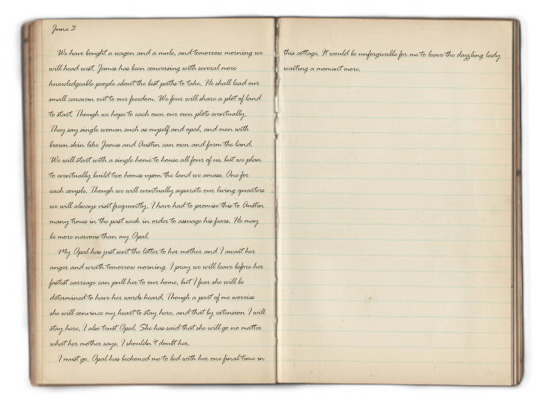 June 3
We have bought a wagon and a mule, and tomorrow morning we
will head west. James has been conversing with several more
knowledgeable people about the best paths to take. He shall lead our
small caravan out to our freedom. We four will share a plot of land
to start. Though we hope to each own our own plots eventually.
They say single women such as myself and opal, and men with
brown skin like James and Austin can own and farm the land.
We will start with a single home to house all four of us, but we plan
to eventually build two homes upon the land we amass. One for
each couple. Though we will eventually separate our living quarters
we will always visit frequently. I have had to promise this to Austin
many times in the past week in order to assuage his fears. He may
be more nervous than my Opal.
My Opal has just sent the letter to her mother and I await her
anger and wrath tomorrow morning. I pray we will leave before her
fastest carriage can pull her to our home, but I fear she will be
determined to have her words heard. Though a part of me worries
she will convince my heart to stay here, and that by extension I will
stay here, I also trust Opal. She has said that she will go no matter
what her mother says. I shouldn't doubt her.
I must go. Opal has beckoned me to bed with her one final time in
this cottage. It would be unforgivable for me to leave the dazzling lady
waiting a moment more.